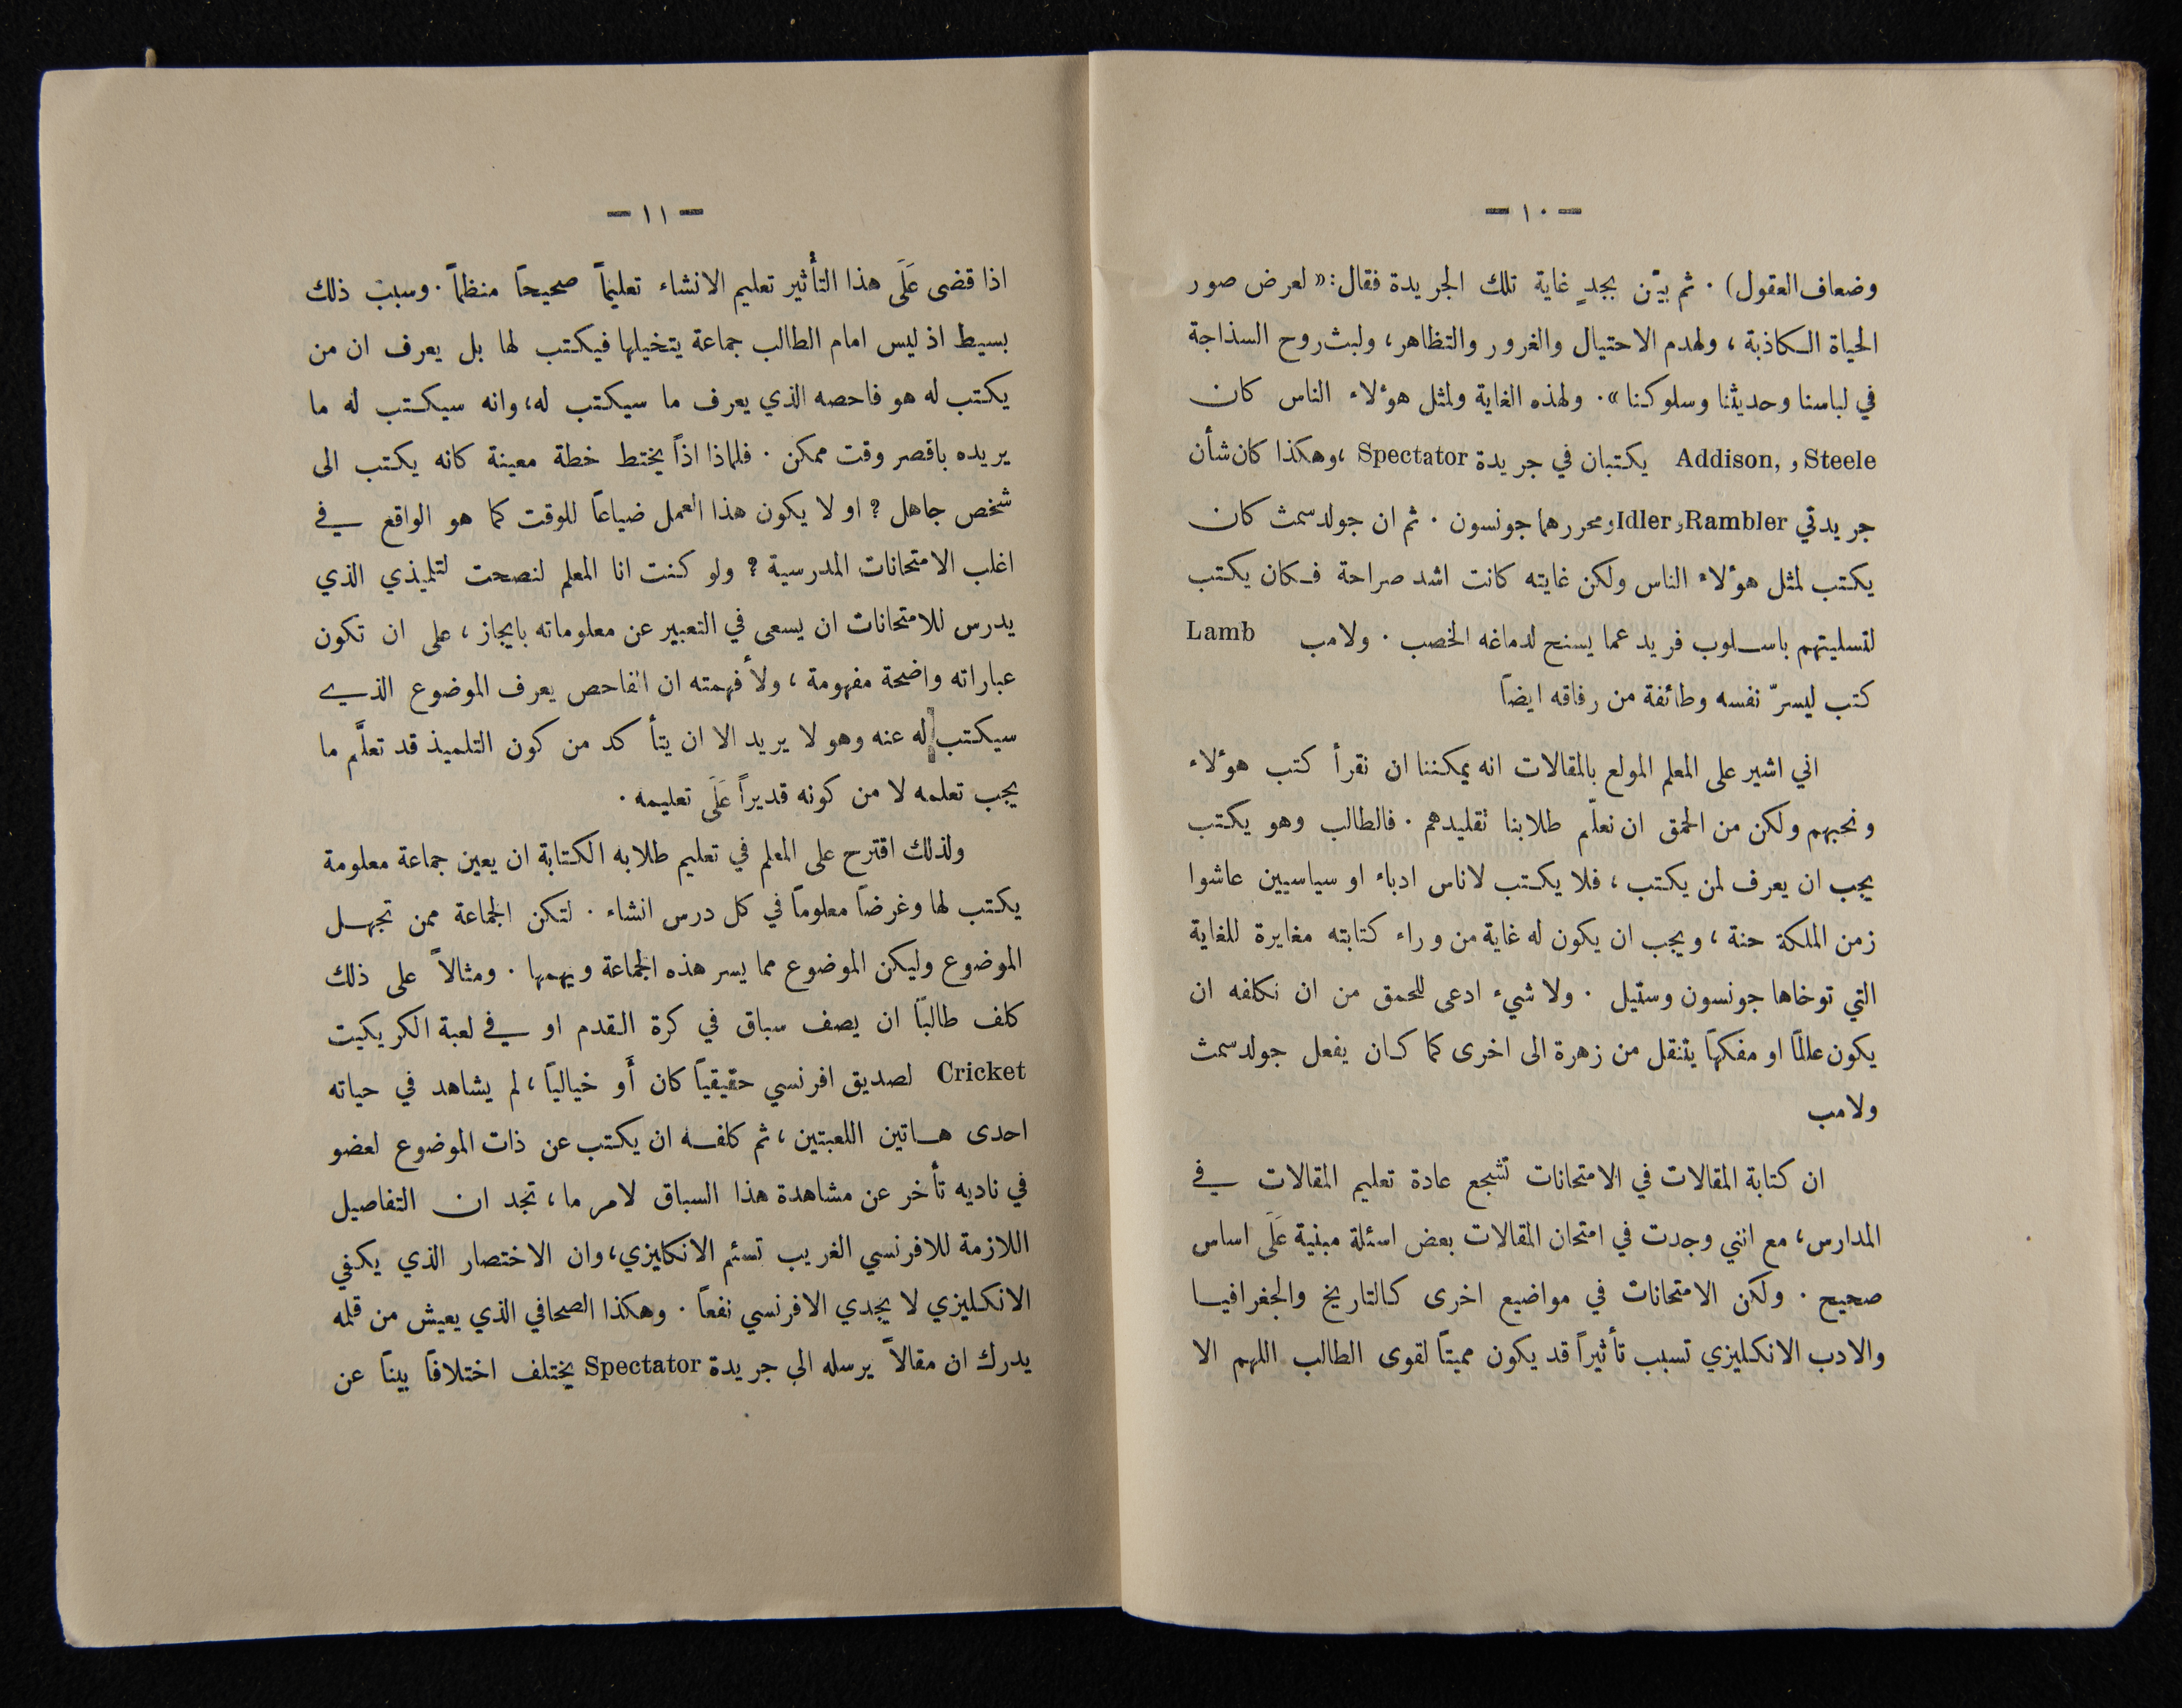 — ١٠ —
وضعاف العقول) . ثم بيّن بجدٍ غاية تلك الجريدة فقال: « لعرض صور
الحياة الكاذبة ، ولهدم الاحتيال والغرور والتظاهر، ولبث روح السذاجة
في لباسنا وحديثنا وسلوكنا ». ولهذه الغاية ولمثل هوٴلاء الناس كان
Steele و Addison, يكتبان في جريدة Spectator ،وهكذا كان شأن
جريدتي Rambler و Idler ومحررهما جونسون . ثم ان جولدسمث كان
يكتب لمثل هوٴلاء الناس ولكن غايته كانت اشد صراحة فكان يكتب
لتسليتهم باسلوب فريد عما يسنح لدماغه الخصب . ولامب Lamb
كتب ليسرّ نفسه وطائفة من رفاقه ايضاً
اني اشير على المعلم المولع بالمقالات انه يمكننا ان نقرأ كتب هوٴلاء
ونحبهم ولكن من الحمق ان نعلّم طلابنا تقليدهم . فالطالب وهو يكتب
يجب ان يعرف لمن يكتب ، فلا يكتب لاناس ادباء او سياسيين عاشوا
زمن الملكة حنة ، ويجب ان يكون له غاية من وراء كتابته مغايرة للغاية
التي توخاها جونسون وستيل . ولا شيء ادعى للحمق من ان نكلفه ان
يكون عالماً او مفكهاً يتنقل من زهرة الى اخرى كما كان يفعل جولدسمث
ولامب
ان كتابة المقالات في الامتحانات تشجع عادة تعليم المقالات في
المدارس، مع انني وجدت في امتحان المقالات بعض اسئلة مبنية عَلَى اساس
صحيح . ولكن الامتحانات في مواضيع اخرى كالتاريخ والجغرافيا
والادب الانكليزي تسبب تأثيراً قد يكون مميتاً لقوى الطالب اللهم الا
— ١١ —
اذا قضى عَلَى هذا التأثير تعليم الانشاء تعليماً صحيحاً منظماً . وسبب ذلك
بسيط اذ ليس امام الطالب جماعة يتخيلها فيكتب لها بل يعرف ان من
يكتب له هو فاحصه الذي يعرف ما سيكتب له، وانه سيكتب له ما
يريده باقصر وقت ممكن . فلماذا اذاً يختط خطة معينة كانه يكتب الى
شخص جاهل ? او لا يكون هذا العمل ضياعاً للوقت كما هو الواقع في
اغلب الامتحانات المدرسية ? ولو كنت انا المعلم لنصحت لتلميذي الذي
يدرس للامتحانات ان يسعى في التعبير عن معلوماته بايجاز ، على ان تكون
عباراته واضحة مفهومة ، ولأ فهمته ان الفاحص يعرف الموضوع الذي
سيكتب له عنه وهو لا يريد الا ان يتأكد من كون التلميذ قد تعلَّم ما
يجب تعلمه لا من كونه قديراً عَلَى تعليمه .
ولذلك اقترح على المعلم في تعليم طلابه الكتابة ان يعين جماعة معلومة
يكتب لها وغرضاً معلوماً في كل درس انشاء . لتكن الجماعة ممن تجهل
الموضوع وليكن الموضوع مما يسر هذه الجماعة ويهمها . ومثالاً على ذلك
كلف طالباً ان يصف سباق في كرة القدم او في لعبة الكريكيت
Cricket لصديق افرنسي حقيقياً كان أَو خيالياً ، لم يشاهد في حياته
احدى هاتين اللعبتين ، ثم كلفه ان يكتب عن ذات الموضوع لعضو
في ناديه تأخر عن مشاهدة هذا السباق لامر ما ، تجد ان التفاصيل
اللازمة للافرنسي الغريب تسئم الانكليزي، وان الاختصار الذي يكفي
الانكليزي لا يجدي الافرنسي نفعاً . وهكذا الصحافي الذي يعيش من قلمه
يدرك ان مقالاً يرسله الى جريدة Spectator يختلف اختلافاً بيناً عن